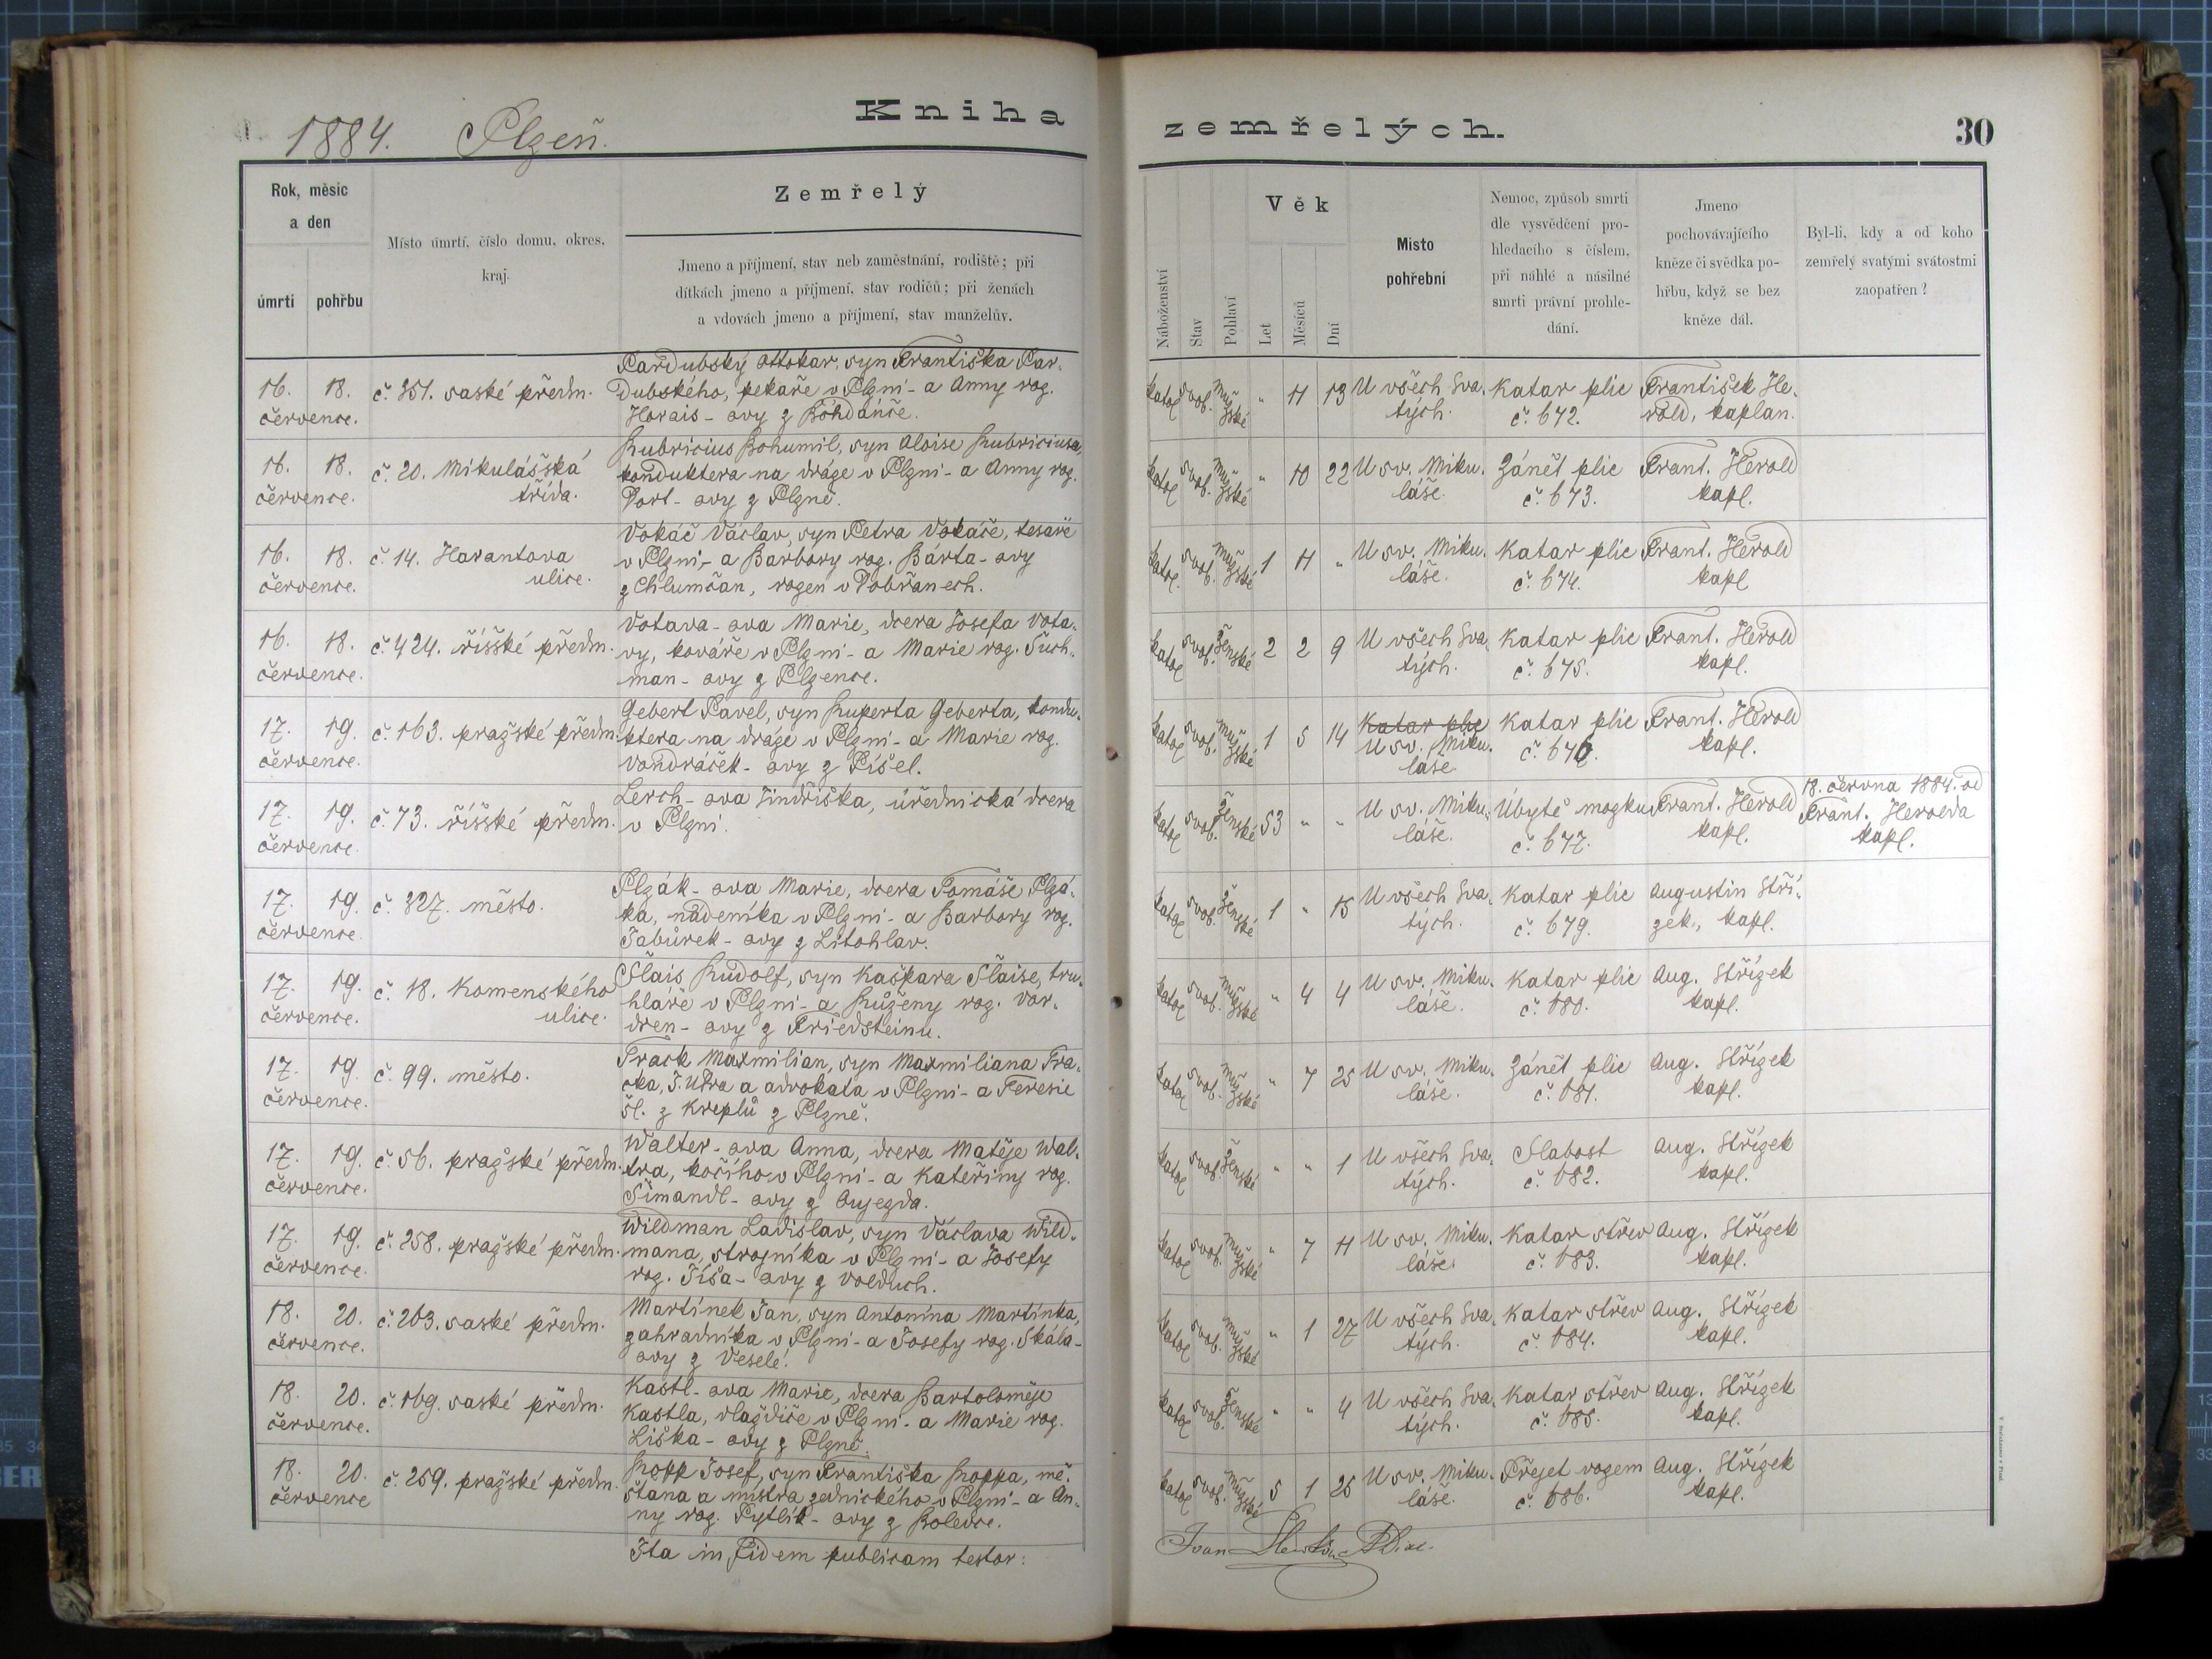 1884. Plzeň.
Kniha
zemřelých.
30
Rok, měsíc
a den
úmrtí
pohřbu
Místo úmrtí, číslo domu, okres,
kraj.
Zemřelý
Jmeno a příjmení, stav neb zaměstnání, rodiště; při
dítkách jmeno a příjmení, stav rodičů; při ženách
a vdovách jmeno a příjmení, stav manželův.
Náboženství
Stav
Pohlaví
Věk
Let
Měsíců
Dní
Místo
pohřební
Nemoc, způsob smrti
dle vysvědčení pro-
hledacího s číslem,
při náhlé a násilné
smrti právní prohle-
dání.
Jmeno
pochovávajícího
kněze či svědka po-
hřbu, když se bez
kněze dál.
Byl-li, kdy a od koho
zemřelý svatými svátostmi
zaopatřen?
16. 18.
července.
č. 351. saské předm.
Pardubský Ottokar, syn Františka Par-
dubského, pekaře v Plzni - a Anny roz.
Horais - ovy z Bohdanče.
katol svob. mužské " 11 13
U všech Sva-
tých.
Katar plic
č. 672.
František He-
rold, kaplan.
16. 18.
července.
č. 20. Mikulášská
třída.
Rubricius Bohumil, syn Aloise Rubriciusa,
konduktera na dráze v Plzni - a Anny roz.
Port - ovy z Plzně.
katol svob. mužské " 10 22
U sv. Miku-
láše.
Zánět plic
č. 673.
Frant. Herold
kapl.
16. 18.
července.
č. 14. Harantova
ulice.
Vokáč Václav, syn Petra Vokáče, tesaře
v Plzni - a Barbory roz. Bárta - ovy
z Chlumčan, rozen v Dobřanech.
katol. svob. mužské 1 11 "
U sv. Miku-
láše.
Katar plic
č. 674.
Frant. Herold
kapl
16. 18.
července.
č. 424. říšské předm.
Votava - ova Marie, dcera Josefa Vota-
vy, kováře v Plzni - a Marie roz. Such-
man - ovy z Plzence.
katol svob. ženské 2 2 9
U všech Sva-
tých.
Katar plic
č. 675.
Frant. Herold
kapl.
17. 19.
července.
č. 163. pražské předm.
Gebert Pavel, syn Ruperta Geberta, kondu-
ktera na dráze v Plzni - a Marie roz.
Vondráček - ovy z Píšel.
katol svob. mužské 1 5 14
Katar plic
U sv. Miku-
láše
Katar plic
č. 676.
Frant. Herold
kapl.
17. 19.
července.
č. 73. říšské předm.
Lerch - ova Jindřiška, úřednická dcera
v Plzni.
katol svob. ženské 53 " "
U sv. Miku-
láše.
Úbytě mozku
č. 677.
Frant. Herold
kapl.
18. června 1884. od
Frant. Herolda
kapl.
17. 19.
července.
č. 327. město.
Plzák - ova Marie, dcera Tomáše Plzá-
ka, nádeníka v Plzni - a Barbory roz.
Tabůrek - ovy z Litohlav.
katol svob. ženské 1 " 15
U všech Sva-
tých.
Katar plic
č. 679.
Augustin Stří-
zek, kapl.
17. 19.
července.
č. 18. Komenského
ulice.
Šlais Rudolf, syn Kašpara Šlaise, tru-
hláře v Plzni - a Růženy roz. Vor-
dren - ovy z Friedsteinu.
katol svob. mužské " 4 4
U sv. Miku-
láše.
Katar plic
č. 680.
Aug. Střízek
kapl.
17. 19.
července.
č. 99. město.
Track Maxmilian, syn Maxmiliana Tra-
cka, J. UDra a advokata v Plzni - a Teresie
šl. z Kreplů z Plzně.
katol svob. mužské " 7 25
U sv. Miku-
láše.
Zánět plic
č. 681.
Aug. Střízek
kapl.
17. 19.
července.
č. 56. pražské předm.
Walter - ova Anna, dcera Matěje Wal-
tra, kočího v Plzni - a Kateřiny roz.
Šimandl - ovy z Aujezda.
katol svob. ženské " " 1
U všech Sva-
tých.
Slabost
č. 682.
Aug. Střízek
kapl.
17. 19.
července.
č. 258. pražské předm.
Wildman Ladislav, syn Václava Wild-
mana, strojníka v Plzni - a Josefy
roz. Tíša - ovy z Volduch.
katol svob. mužské " 7 11
U sv. Miku-
láše.
Katar střev
č. 683.
Aug. Střízek
kapl.
18. 20.
července.
č. 203. saské předm.
Martínek Jan, syn Antonína Martínka,
zahradníka v Plzni - a Josefy roz. Skála -
ovy z Veselé.
katol svob. mužské " 1 27
U všech Sva-
tých.
Katar střev
č. 684.
Aug. Střízek
kapl.
18. 20.
července.
č. 169. saské předm.
Kastl - ova Marie, dcera Bartoloměje
Kastla, dlaždiče v Plzni - a Marie roz.
Liška - ovy z Plzně.
katol svob. ženské " " 4
U všech Sva-
tých.
Katar střev
č. 685.
Aug. Střízek
kapl.
18. 20.
července
č. 259. pražské předm.
Ropp Josef, syn Františka Roppa, mě-
šťana a mistra zednického v Plzni - a An-
ny roz. Pytlík - ovy z Bolevce.
katol svob. mužské 5 1 25
U sv. Miku-
láše.
Přejet vozem
č. 686.
Aug. Střízek
kapl.
Ita in fidem publicam testor: